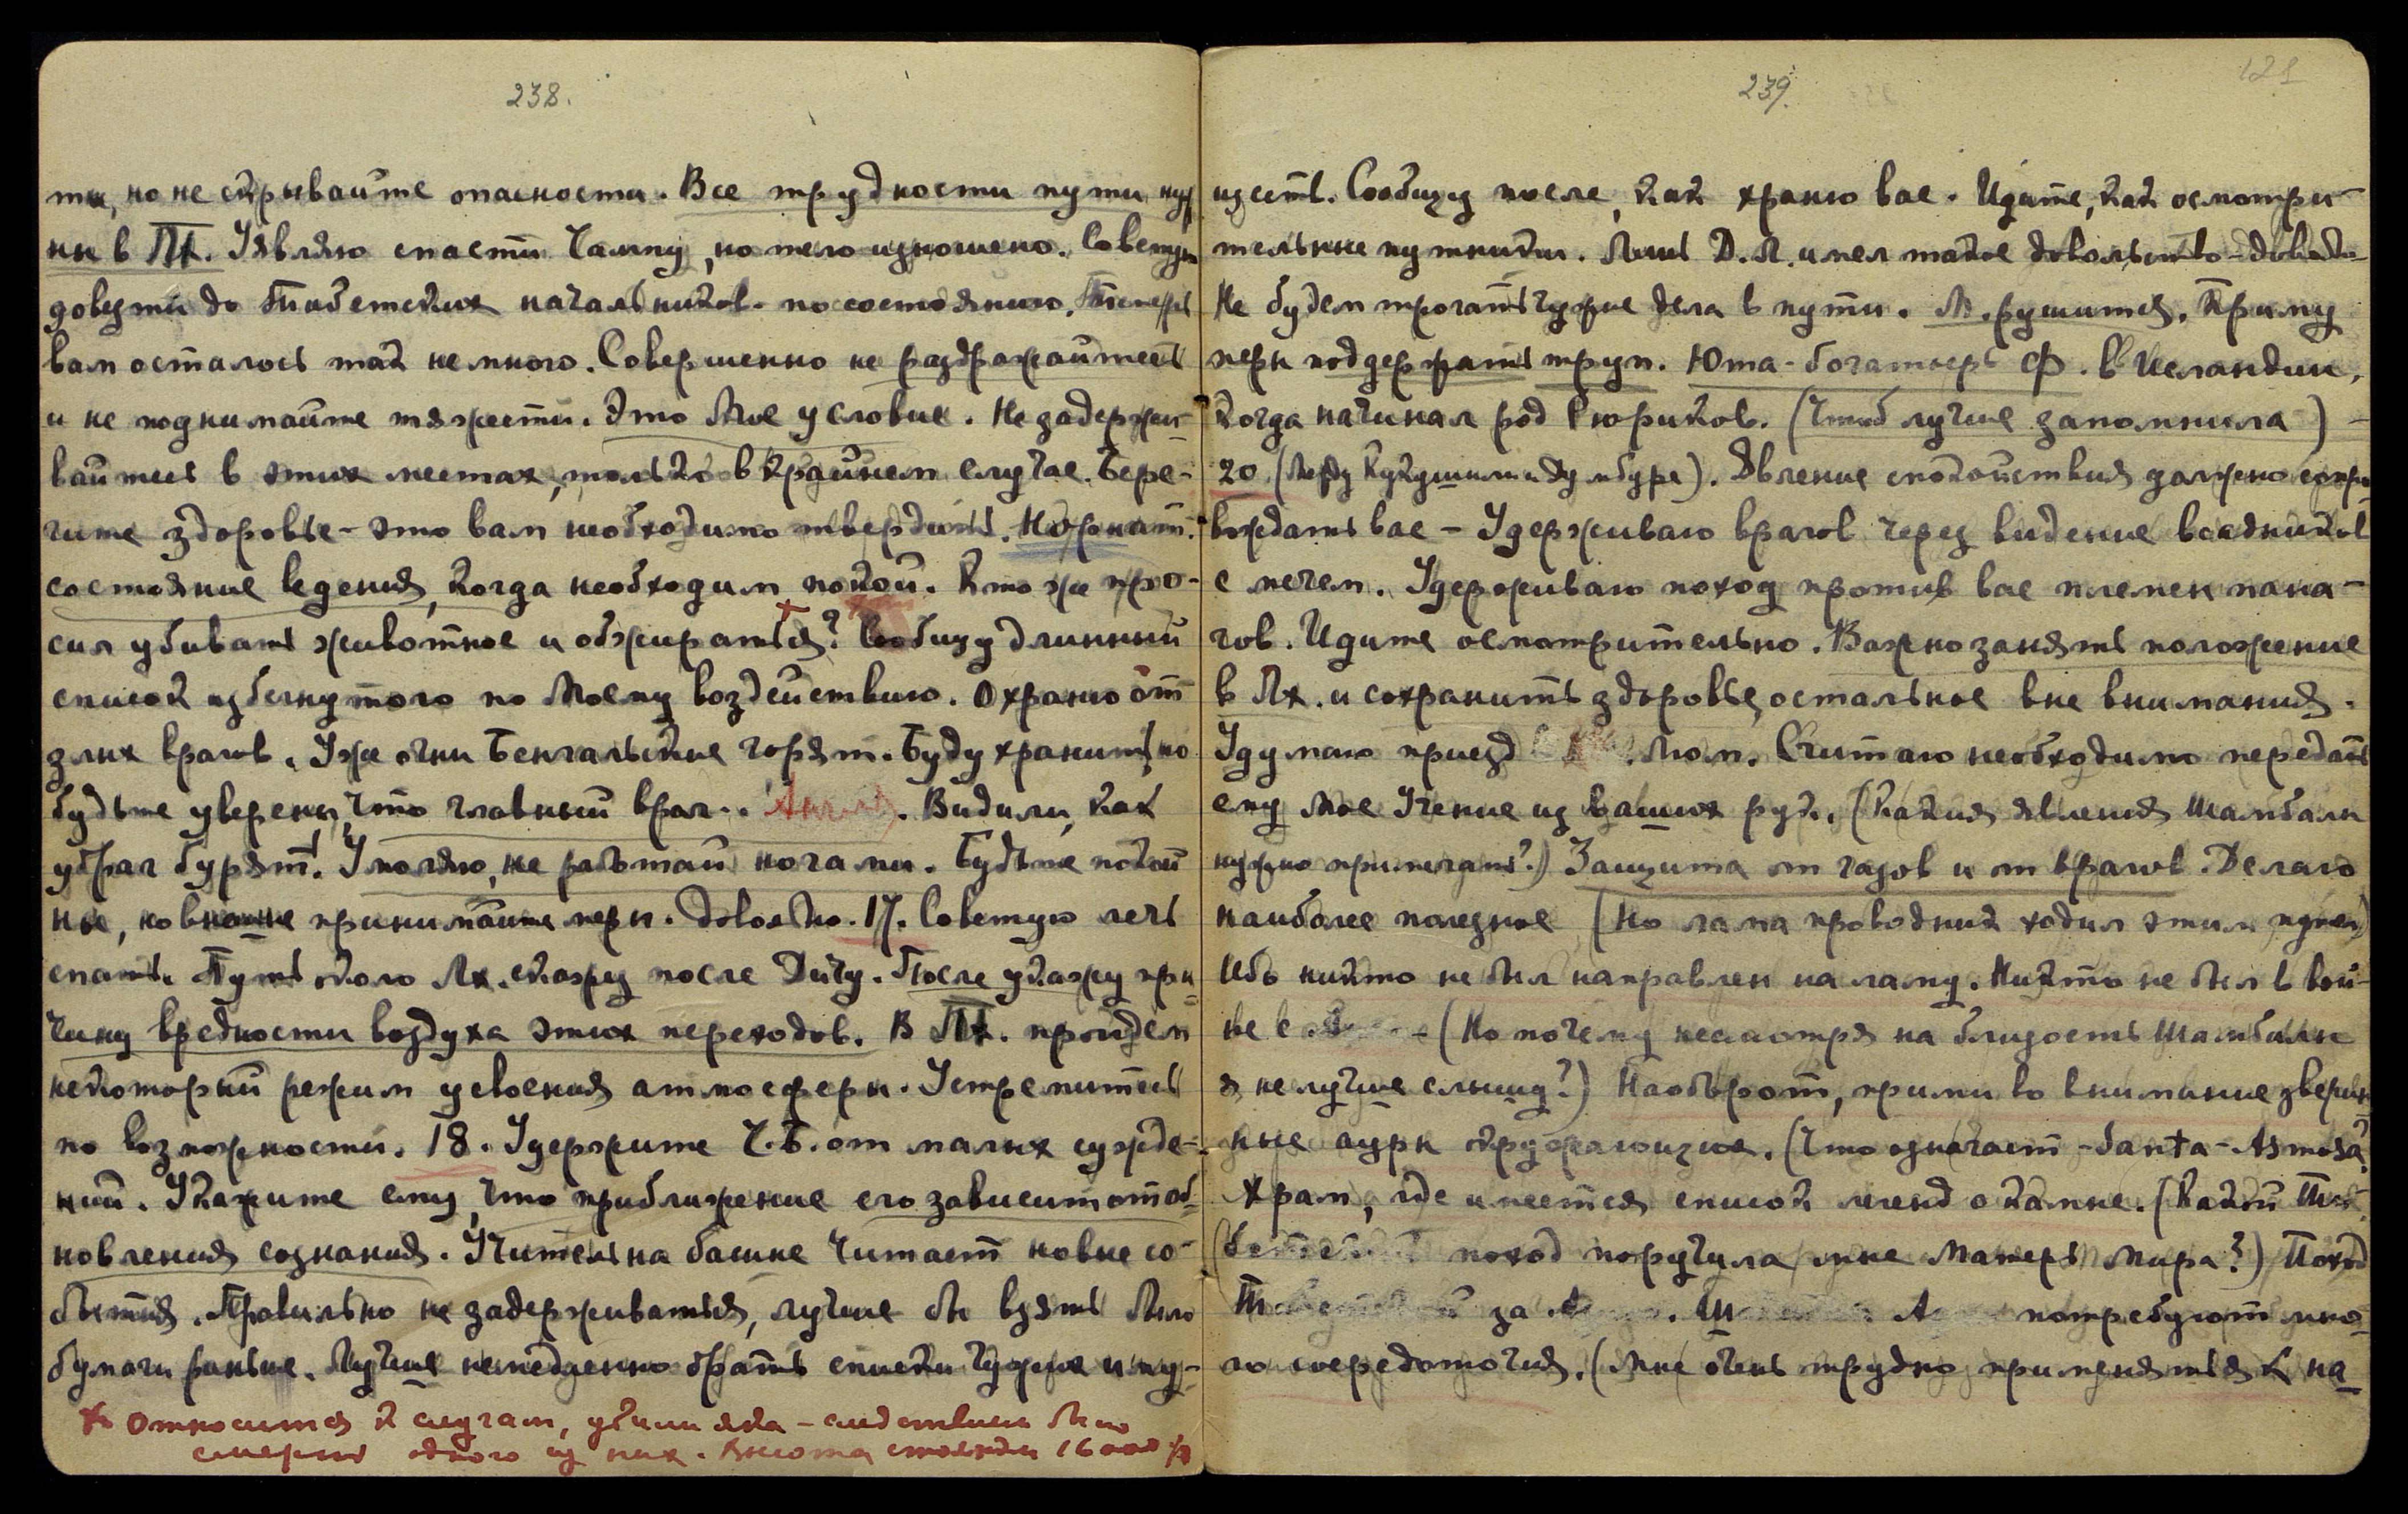 238.
ти, но не скрывайте опасности. Все трудности пути
ны в Лх. Являю спасти Чампу, но тело изношено. Советую
довезти до Тибетских начальников по состоянию. Теперь
вам осталось так немного. Совершенно не раздражайтесь
и не поднимайте тяжести. Это Мое условие. Не задержи-
вайтесь в этих местах, только в крайнем случае. Бере-
гите здоровье - это вам необходимо твердить.
состояние ведения, когда необходим покой. Кто же про-
сил убивать животное и обжираться? Сообщу длинный
список избегнутого по Моему воздействию. Охраню от
злых врагов. Уже огни Бенгальские горят. Буду хранить, но
будьте уверены, что главный враг.. Англия. Видили, как
убрал бурят. Умоляю, не работай ногами. Будьте покой
ны, но вновые принимайте меры. Довольно. 17. Советую лечь
спать. Путь около Лх. скажу после Дичу. После укажу при-
чину вредности воздуха этих переходов. В Лх. пройдем
некоторый режим усвоения атмосферы. Устремитесь
по возможности. 18. Удержите Ч.Б. от малых сужде-
ний. Укажите ему, что приближение его зависит от об-
новления сознания. Учитель на башне читает новые со-
бытия. Правильно не задерживаться, лучше бы взять было
бумаги раньше. Лучше немедленно брать списки чужие и му-
х Относится к слугам, убили яка - следствием было
смерть одного из них. Высота стоянки 16000 ф
239.
121
ществ. Сообщу после, как храню вас. Идите, как осмотри-
тельные путники. Лишь Д. Л. имел такое довольство - довольно
Не будем трогать чужие дела в пути. М. рушится. Приму
меры поддержать труп. Юта - богатырь Ф. в Исландии,
когда начинал род Рюриков. (Чтоб лучше запомнила) -
20. (Между Кукушили и Думбуре). Явление спокойствия должно сопро
вождать вас - Удерживаю врагов через видение всадников
с мечем. Удерживаю поход против вас племен пана-
гов. Идите осмотрительно. Важно занять положение
в Лх. и сохранить здоровье, остальное вне внимания.
Удумаю приезд Мом. Считаю необходимо передать
ему Мое Учение из ваших рук. (Какия явления Шамбалы
нужно примечать?) Защита от газов и от врагов. Делаю
наиболее полезное (Но лама проводник ходил этим путем)
Ибо никто не был направлен на ламу. Никто не был в вой-
не с (Но почему несмотря на близость Шамбалы
я не лучше слышу?) Наоборот, прими во внимание звериные
ные ауры окружающие. (Что означает - Santa-
Храм, где имеется список легенд о камне. (Какой Ти-
поход поручила мне Матерь Мира?) Поход
за потребуют мно-
го сосредоточия. (Мне очень трудно применяться к на